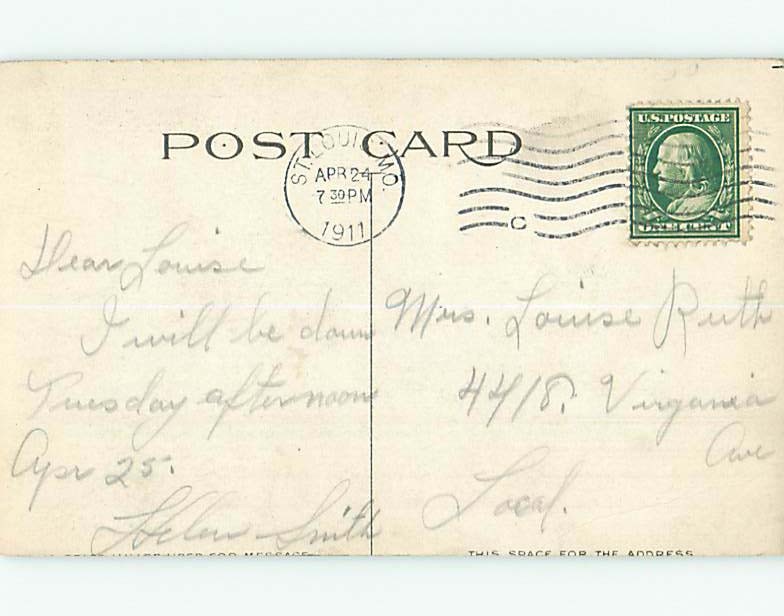 POST CARD
ST. LOUIS, MO.
APR 24
7 30 PM
1911
C
U.S. POSTAGE
ONE CENT
Dear Louise
I will be down
Tuesday afternoon
Apr 25.
Helen Smith
Mrs. Louise Ruth
4418. Virgania
Ave
Local.
SPACE FOR MESSAGE
THIS SPACE FOR THE ADDRESS